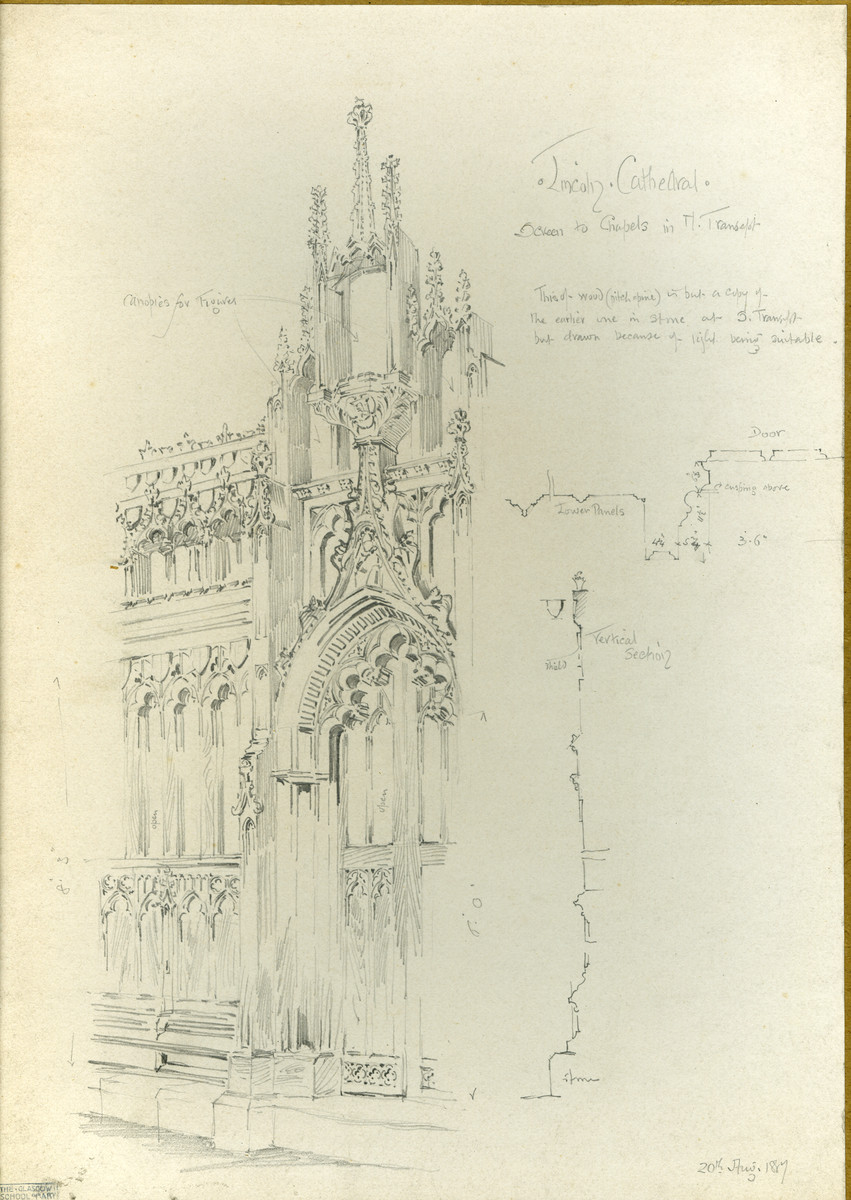 · Lincoln · Cathedral ·
Screen to Chapels in N. Transept
This of wood (pitch pine) is but a copy of
the earlier one in stone at S. Transept
but drawn because of light being suitable.
Canopies for Figures
Door
cusping above
Lower Panels
3·6"
Vertical
Section
shield
open
open
stone
20th Aug. 18
THE GLASGOW
SCHOOL